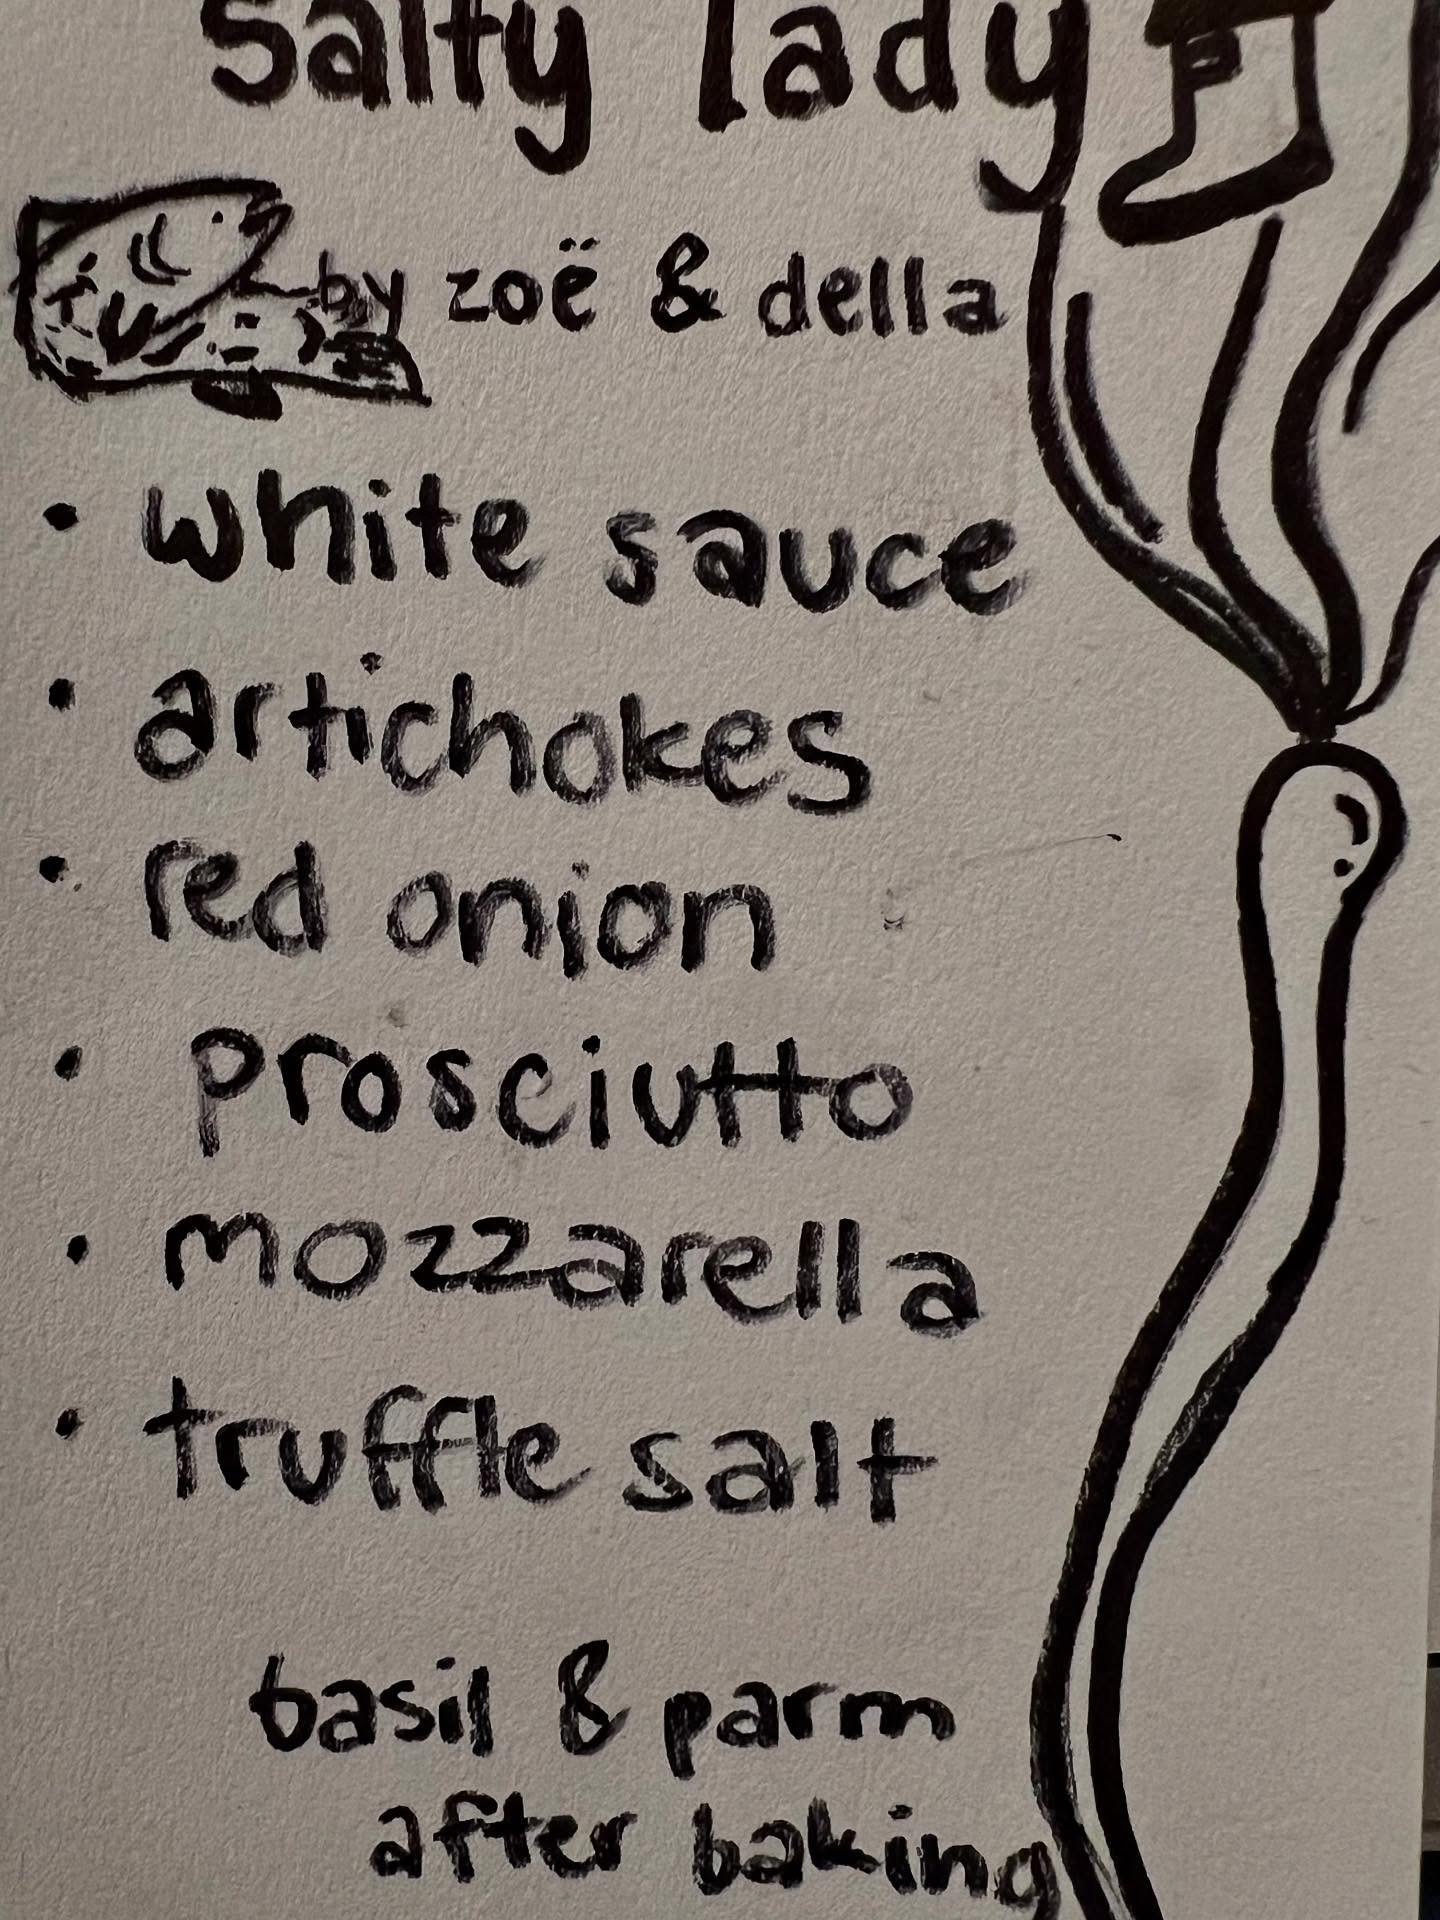 salty lady
by zoë & della
• white sauce
• artichokes
• red onion
• prosciutto
• mozzarella
• truffle salt
basil & parm
after baking